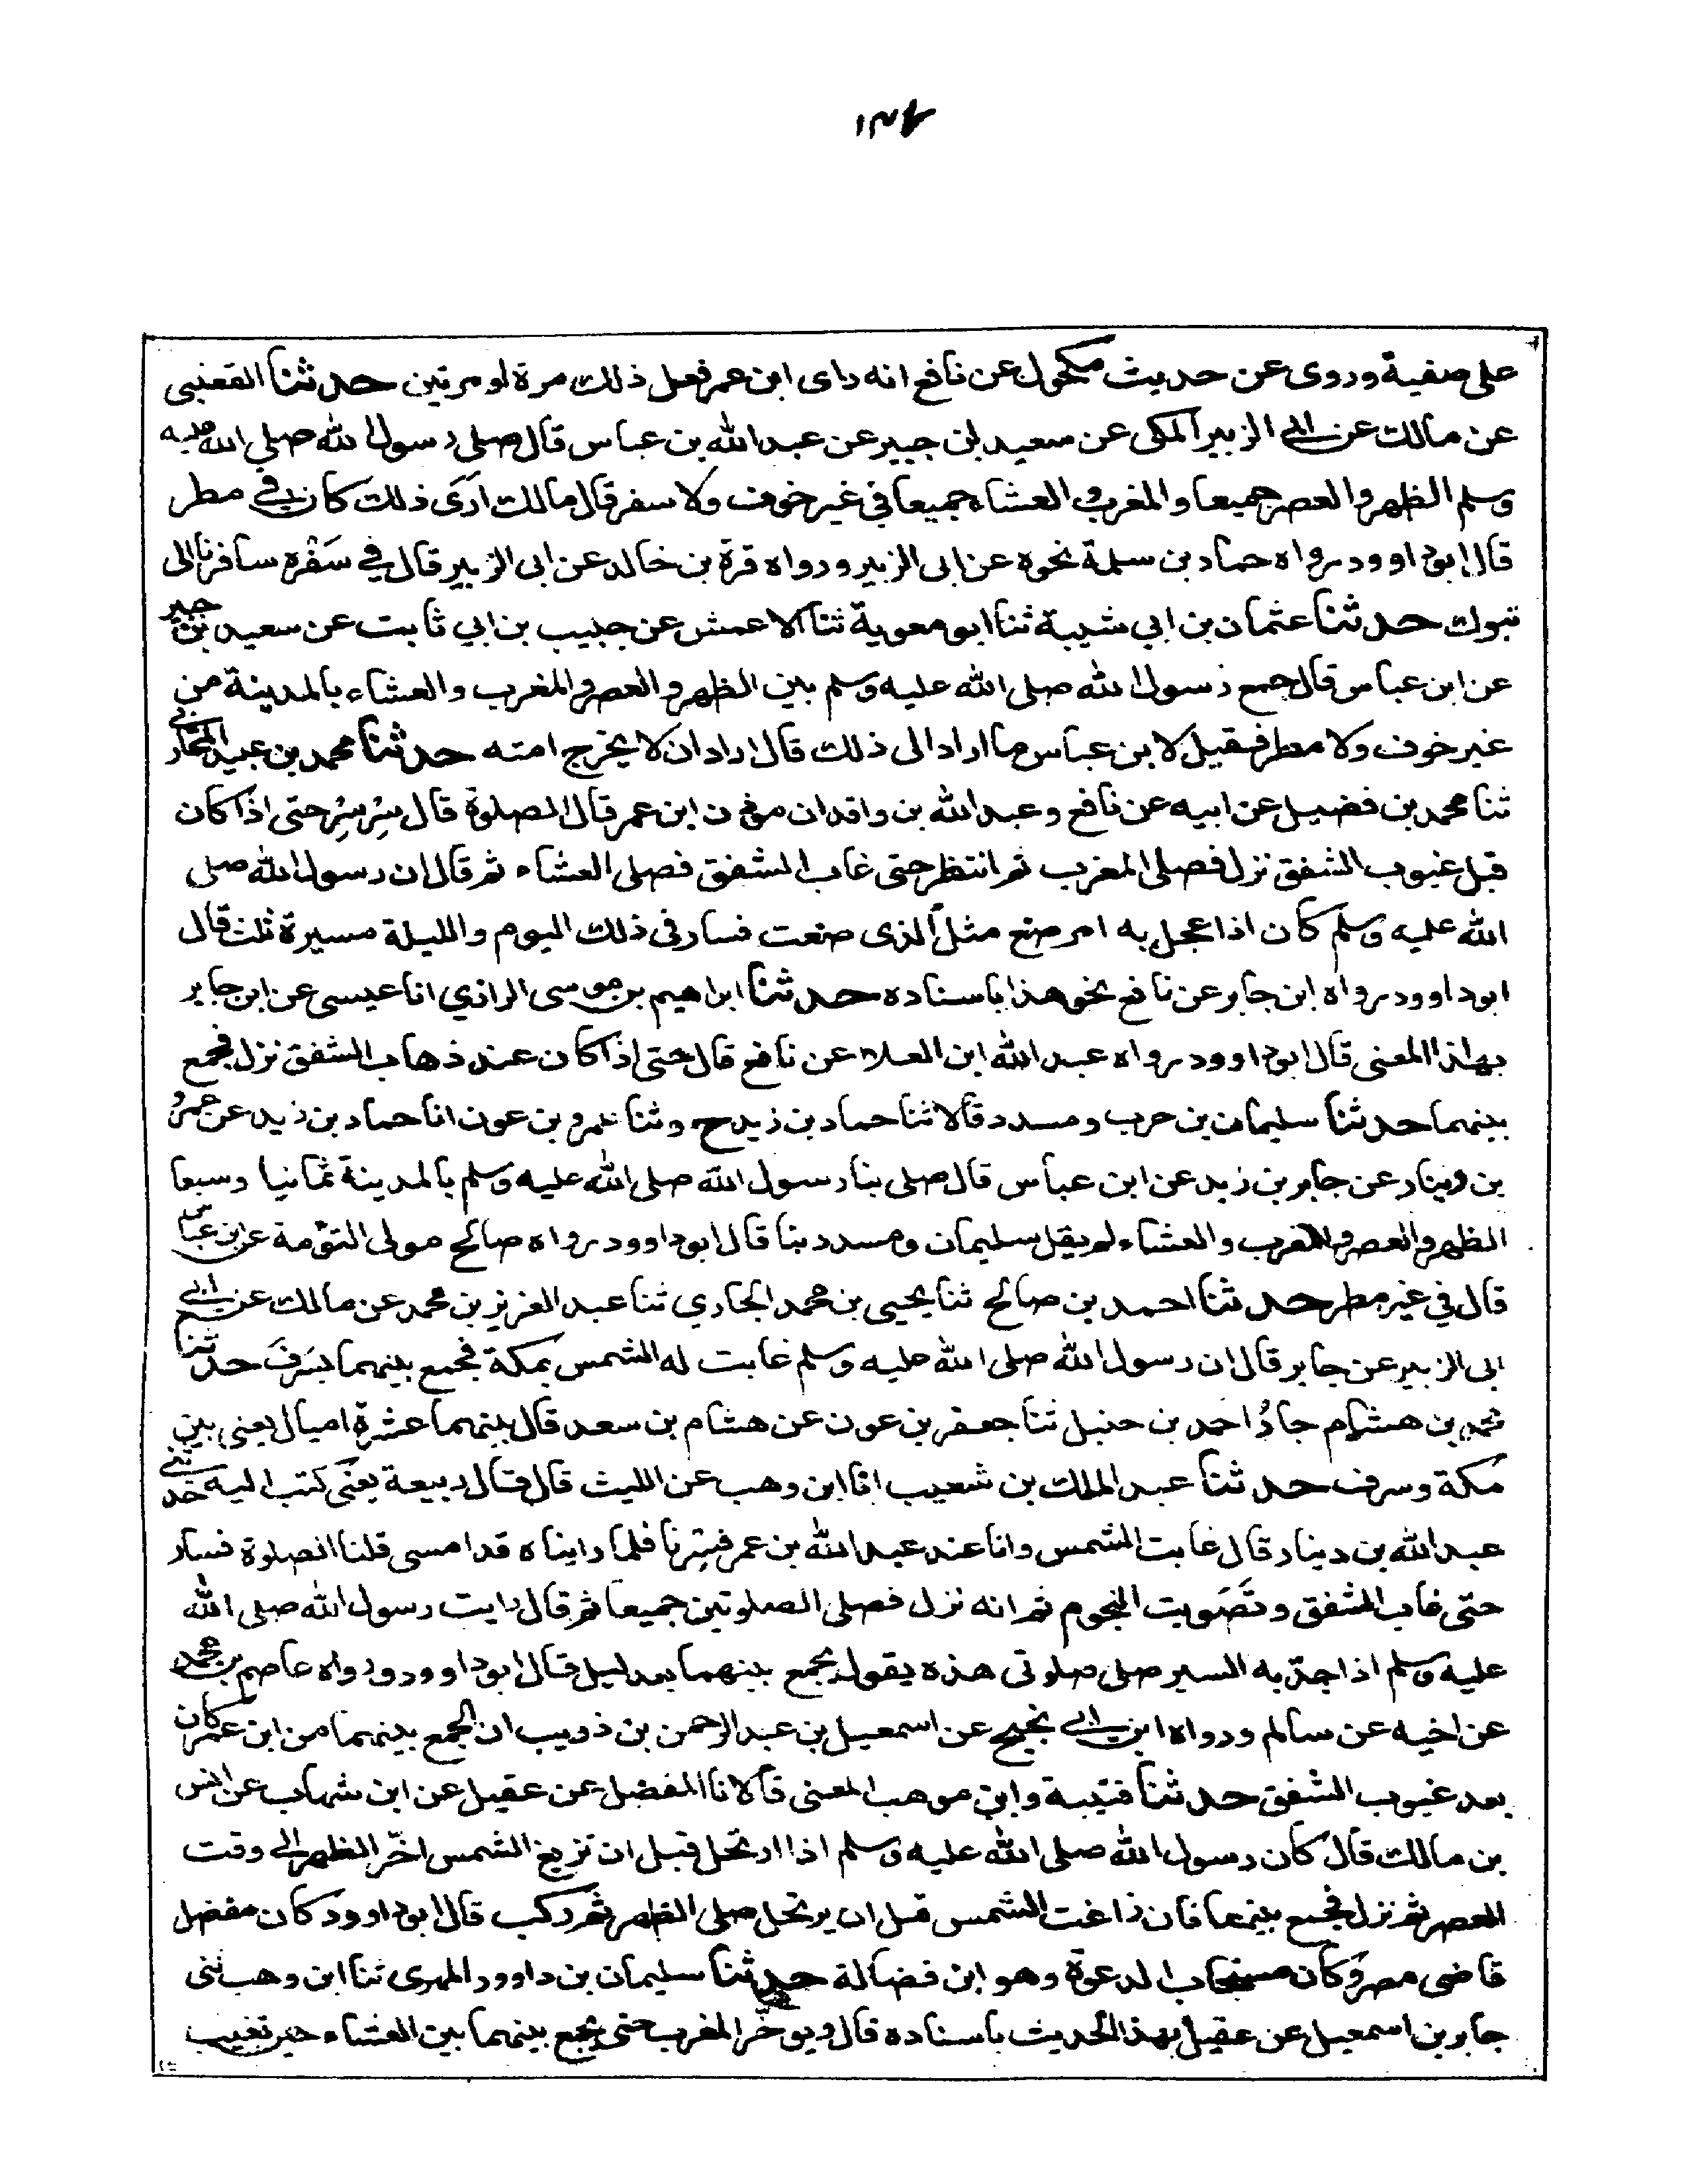 على صفية وروى عن حديث مكحول عن نافع انه راى ابن عمر فعل ذلك مرة او مرتين حدثنا القعنبى
عن مالك عن ابي الزبير المكى عن سعيد بن جبير عن عبد الله بن عباس قال صلى رسول الله صلى الله عليه
وسلم الظهر والعصر جميعا والمغرب والعشاء جميعا فى غير خوف ولا سفر قال مالك ارَى ذلك كان في مطر
قال ابو داوود رواه حماد بن سلمة نحوه عن ابى الزبير ورواه قرة بن خالد عن ابى الزبير قال في سَفْرة سافرنا الى
تبوك حدثنا عثمان بن ابي شيبة ثنا ابو معوية ثنا الاعمش عن حبيب بن ابي ثابت عن سعيد بن جبير
عن ابن عباس قال جمع رسول الله صلى الله عليه وسلم بين الظهر والعصر والمغرب والعشاء بالمدينة من
غير خوف ولا مطر فقيل لابن عباس ما اراد الى ذلك قال اراد ان لا يحرج امته حدثنا محمد بن عبيد المحاربي
ثنا محمد بن فضيل عن ابيه عن نافع وعبد الله بن واقد ان موذن ابن عمر قال الصلوة قال سِرْ سِرْ حتى اذا كان
قبل غيوب الشفق نزل فصلى المغرب ثم انتظر حتى غاب الشفق فصلى العشاء ثم قال ان رسول الله صلى
الله عليه وسلم كان اذا عجل به امر صنع مثل الذى صنعت فسار فى ذلك اليوم والليلة مسيرة ثلث قال
ابو داوود رواه ابن جابر عن نافع نحو هذا باسناده حدثنا ابراهيم بن موسى الرازي انا عيسى عن ابن جابر
بهذا المعنى قال ابو داوود رواه عبد الله ابن العلاء عن نافع قال حتى اذا كان عند ذهاب الشفق نزل فجمع
بينهما حدثنا سليمان بن حرب ومسدد قالا ثنا حماد بن زيد ح وثنا عمرو بن عون انا حماد بن زيد عن عمرو
بن دينار عن جابر بن زيد عن ابن عباس قال صلى بنا رسول الله صلى الله عليه وسلم بالمدينة ثمانيا وسبعا
الظهر والعصر والمغرب والعشاء لم يقل سليمان ومسدد بنا قال ابو داوود رواه صالح مولى التؤمة عن ابن عباس
قال في غير مطر حدثنا احمد بن صالح ثنا يحيى بن محمد الجاري ثنا عبد العزيز بن محمد عن مالك عن ابي
ابى الزبير عن جابر قال ان رسول الله صلى الله عليه وسلم غابت له الشمس بمكة فجمع بينهما بسَرِفَ حدثنا
محمد بن هشام جارُ احمد بن حنبل ثنا جعفر بن عون عن هشام بن سعد قال بينهما عشرة اميال يعنى بين
مكة وسرف حدثنا عبد الملك بن شعيب انا ابن وهب عن الليث قال قال ربيعة يعنى كتب اليه حدثني
عبد الله بن دينار قال غابت الشمس وانا عند عبد الله بن عمر فسِرنا فلما رايناه قد امسى قلنا الصلوة فسار
حتى غاب الشفق وتَصَوبت النجوم ثم انه نزل فصلى الصلوتين جميعا ثم قال رايت رسول الله صلى الله
عليه وسلم اذا جدّ به السير صلى صلوتى هذه يقول يجمع بينهما بعد ليل قال ابو داوود ورواه عاصم بن محمد
عن اخيه عن سالم ورواه ابن ابي نجيح عن اسمعيل بن عبد الرحمن بن ذويب ان الجمع بينهما من ابن عمر كان
بعد غيوب الشفق حدثنا قتيبة وابن موهب المعنى قالا نا المفضل عن عقيل عن ابن شهاب عن انس
بن مالك قال كان رسول الله صلى الله عليه وسلم اذا ارتحل قبل ان تزيغ الشمس اخّر الظهر الى وقت
العصر ثم نزل فجمع بينهما فان زاغت الشمس قبل ان يرتحل صلى الظهر ثم ركب قال ابو داوود كان مفضل
قاضى مصر وكان مستجاب الدعوة وهو ابن فضالة حدثنا سليمان بن داوود المهرى ثنا ابن وهب ثنى
جابر بن اسمعيل عن عقيل بهذا الحديث باسناده قال ويوخّر المغرب حتى يجمع بينهما بين العشاء حين تغيب